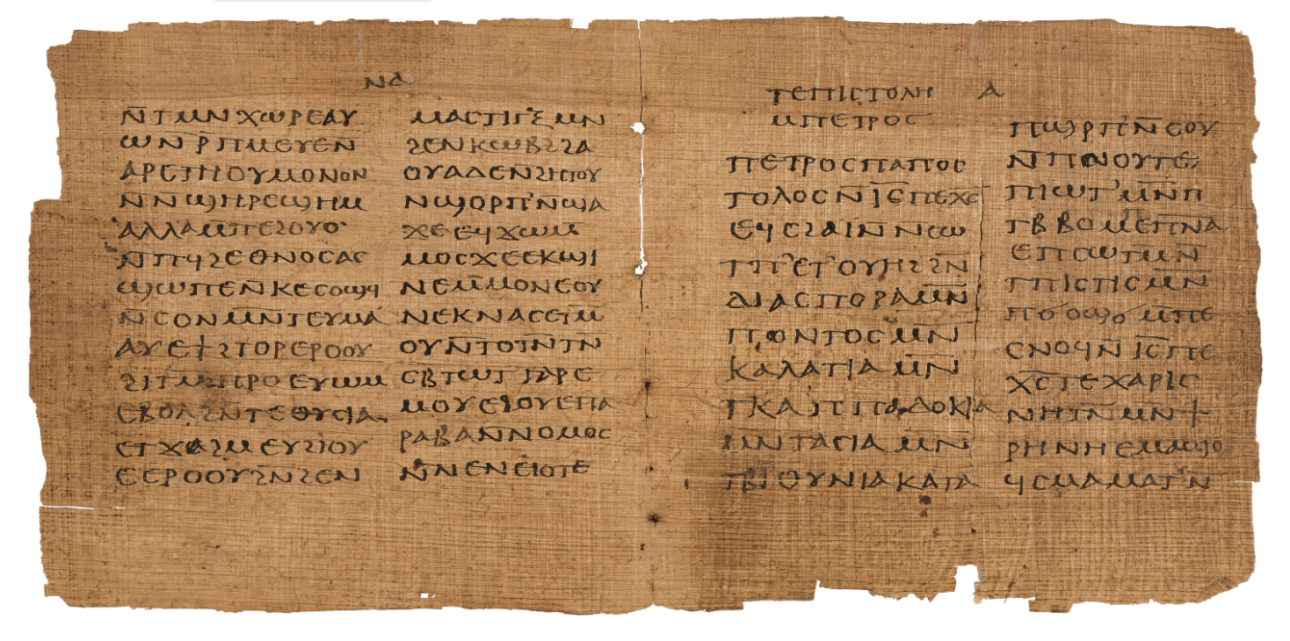 ⲛⲇ
ⲛ̄ⲧⲙⲛⲭⲱⲣⲉⲁⲩ
ⲱⲛⲣ̄ⲡⲙⲉⲩⲉⲛ
ⲁⲣⲉⲧⲏⲟⲩⲙⲟⲛⲟⲛ
ⲛ̄ⲛϣⲏⲣⲉϣⲏⲙ
ⲁⲗⲗⲁⲙ̄ⲡⲉϩⲟⲩⲟ
ⲛ̄ⲡϥϩⲉⲑⲛⲟⲥⲁⲥ
ϣⲱⲡⲉⲛ̄ⲕⲉⲥⲟⲡ
ⲛ̄ⲥⲟⲛⲙⲛ̄ⲧⲉⲩⲙⲁ
ⲁⲩⲉϯϩⲧⲟⲣⲉⲣⲟⲟⲩ
ϩⲓⲧⲙ̄ⲡⲣⲟⲉⲩⲱⲙ
ⲉⲃⲟⲗϩⲛ̄ⲧⲉⲑⲩⲥⲓⲁ
ⲉⲧϫⲁϩⲙⲉⲩϩⲓⲟⲩ
ⲉⲉⲣⲟⲟⲩϩⲛ̄ϩⲉⲛ
ⲙⲁⲥⲧⲓⲅⲝⲙⲛ
ϩⲉⲛⲕⲱⲃϩϩⲁ
ⲟⲩⲁⲇⲉⲛ̄ϩⲏⲧⲟⲩ
ⲛϣⲟⲣⲡ̄ⲛ̄ϣⲁ
ϫⲉⲉϥϫⲱⲙ̄
ⲙⲟⲥϫⲉⲉⲕϣⲓ
ⲛⲉⲙ̄ⲙⲟⲛⲉⲟⲩ
ⲛⲉⲕⲛⲁⲥⲉⲧⲙ̄
ⲟⲩⲛ̄ⲧⲟⲧⲛ̄ⲧⲛ̄
ⲥⲃⲧⲱⲧⲅⲁⲣⲉ
ⲙⲟⲩⲉϩⲟⲩⲉⲡⲁ
ⲣⲁⲃⲁⲛ̄ⲛⲟⲙⲟⲥ
ⲛ̄ⲛⲉⲛⲉⲓⲟⲧⲉ
ⲧⲉⲡⲓⲥⲧⲟⲗⲏ ⲁ
ⲙⲡⲉⲧⲣⲟⲥ
ⲡⲉⲧⲣⲟⲥⲡⲁⲡⲟⲥ
ⲧⲟⲗⲟⲥⲛ̄ⲓ̄ⲥ̄ⲡⲉⲭ̄ⲥ̄
ⲉϥⲥϩⲁⲓ̈ⲛ̄ⲛⲥⲱ
ⲧⲡ̄ⲉⲧⲟⲩⲏϩϩⲛ̄
ⲇⲓⲁⲥⲡⲟⲣⲁⲙⲛ̄
ⲡⲟⲛⲧⲟⲥⲙⲛ̄
ⲕⲁⲗⲁⲧⲓⲁⲙⲛ̄
ⲧⲕⲁⲡⲡⲁⲇⲟⲕⲓⲁ
ⲙⲛ̄ⲧⲁⲥⲓⲁⲙⲛ̄
ⲧⲃⲓⲑⲩⲛⲓⲁⲕⲁⲧⲁ
ⲡϣⲣ̄ⲡⲛ̄ⲉⲟⲩ
ⲛ̄ⲡⲛⲟⲩⲧⲉ
ⲡⲓⲱⲧ ⲙⲛ̄ⲡ
ⲧⲃⲃⲟⲙ̄ⲉⲡ̄ⲛ̄ⲁ
ⲉⲡⲥⲱⲧⲙ̄ⲛ̄
ⲧⲡⲓⲥⲧⲓⲥⲙⲛ̄
ⲡϭⲟϣϭ ⲙ̄ⲡⲉ
ⲥⲛⲟϥⲛ̄ⲓ̄ⲥ̄ⲡⲉ
ⲭ̄ⲥ̄ⲧⲉⲭⲁⲣⲓⲥ
ⲛⲏⲧⲛ̄ⲙⲛ̄ϯ
ⲣⲏⲛⲏⲉⲙⲁϣⲟ
ϥⲥⲙⲁⲙⲁⲧ ⲛ̄